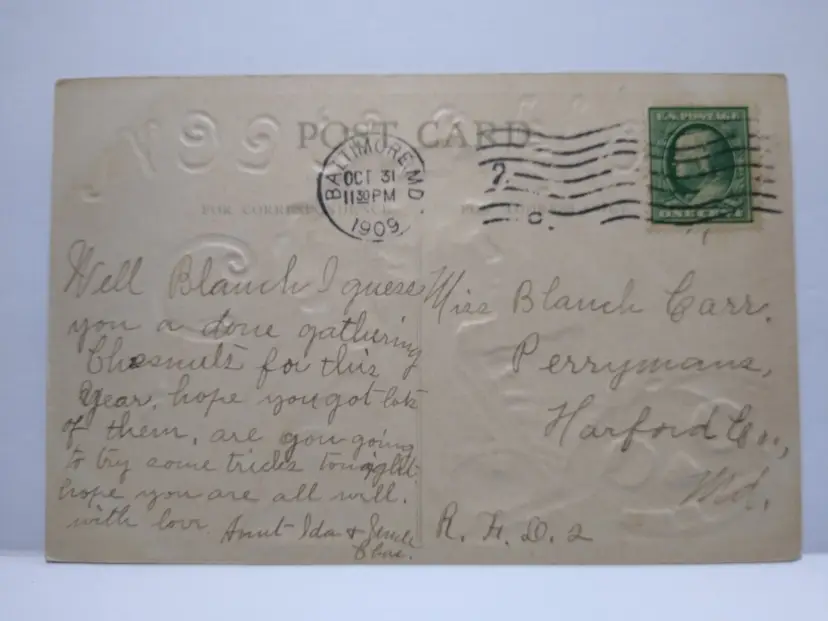 POST CARD
BALTIMORE, MD.
OCT 31
11 30 PM
1909
7
C.
U.S. POSTAGE
ONE CENT
FOR CORRESPONDENCE
FOR ADDRESS
Well Blanch I guess
you a done gathering
Chesnuts for this
year, hope you got lots
of them, are you going
to try some tricks tonight
hope you are all will.
with love. Aunt Ida & Uncle
Chas.
Miss Blanch Carr.
Perrymans,
Harford Co.,
Md.
R. F. D. 2